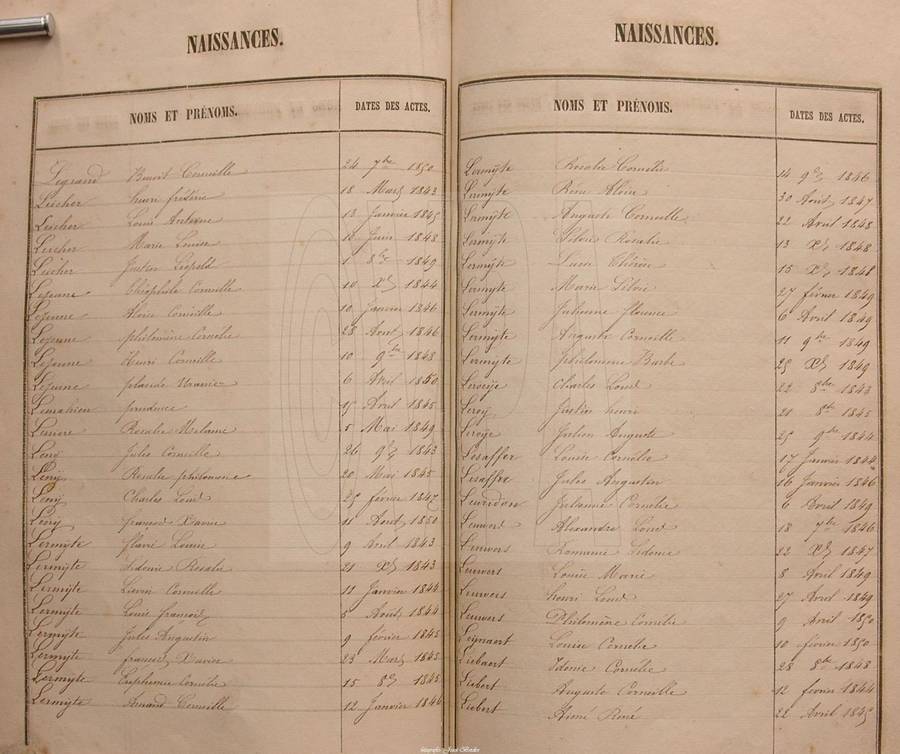 NAISSANCES.
NOMS ET PRÉNOMS. DATES DES ACTES.
Legrand Benoit Corneille 24 7bre 1850
Leicher henri frédéric 18 Mars 1843
Leicher Louis Antoine 13 Janvier 1845
Leicher Marie Louise 16 Juin 1848
Leicher Justin Léopold 1 8bre 1849
Lejeune théophile Corneille 10 Xb 1844
Lejeune Aloïse Corneille 10 Janvier 1846
Lejeune philomène Cornélie 28 Aout 1846
Lejeune Henri Corneille 10 9bre 1848
Lejeune Uranie 6 Avril 1850
Lemahieu prudence 15 Avril 1845
Rosalie Mélanie 5 Mai 1849
Leny Jules Corneille 26 9b 1843
Leny Rosalie philomène 20 Mai 1845
Leny Charles Louis 25 février 1847
Leny francois Xavier 11 Aout 1850
Lermyte flavie Louise 9 Avril 1843
Lermyte Sidonie Rosalie 21 Xb 1843
Lermyte Liévin Corneille 11 Janvier 1844
Lermyte Louis francois 5 Aout 1844
Lermyte Jules Augustin 9 février 1845
Lermyte francois Xavier 23 Mars 1845
Lermyte Euphémie Cornélie 15 8b 1845
Lermyte Amand Corneille 12 Janvier 1846
NAISSANCES.
NOMS ET PRÉNOMS. DATES DES ACTES.
Lermyte Rosalie Cornélie 14 9b 1846
Lermyte Aloise 30 Aout 1847
Lermyte Auguste Corneille 22 Avril 1848
Lermyte Silvie Rosalie 13 Xb 1848
Lermyte 15 Xb 1848
Lermyte Marie Silvie 27 février 1849
Lermyte Julienne florence 6 Avril 1849
Lermyte Auguste Corneille 11 9bre 1849
Lermyte philomène Barbe 25 Xb 1849
Leroije Charles Louis 22 8bre 1843
Leroy Justin henri 21 8bre 1845
Leroije Julien Auguste 25 9bre 1844
Lesaffer Louise Cornélie 17 Janvier 1844
Lesaffre Jules Augustin 16 Janvier 1846
Leuridon Julienne Cornélie 6 Avril 1849
Alexandre Louis 18 7bre 1846
Leuvers Sidonie 22 Xb 1847
Leuvers Louise Marie 8 Avril 1849
Leuvers henri Louis 27 Avril 1849
Leuvers Philomène Cornélie 9 Avril 1850
Louise Cornélie 10 février 1850
Liebaert Idonie Cornélie 28 8bre 1848
Liebert Auguste Corneille 12 février 1844
Liebert Aimé René 22 Avril 1845